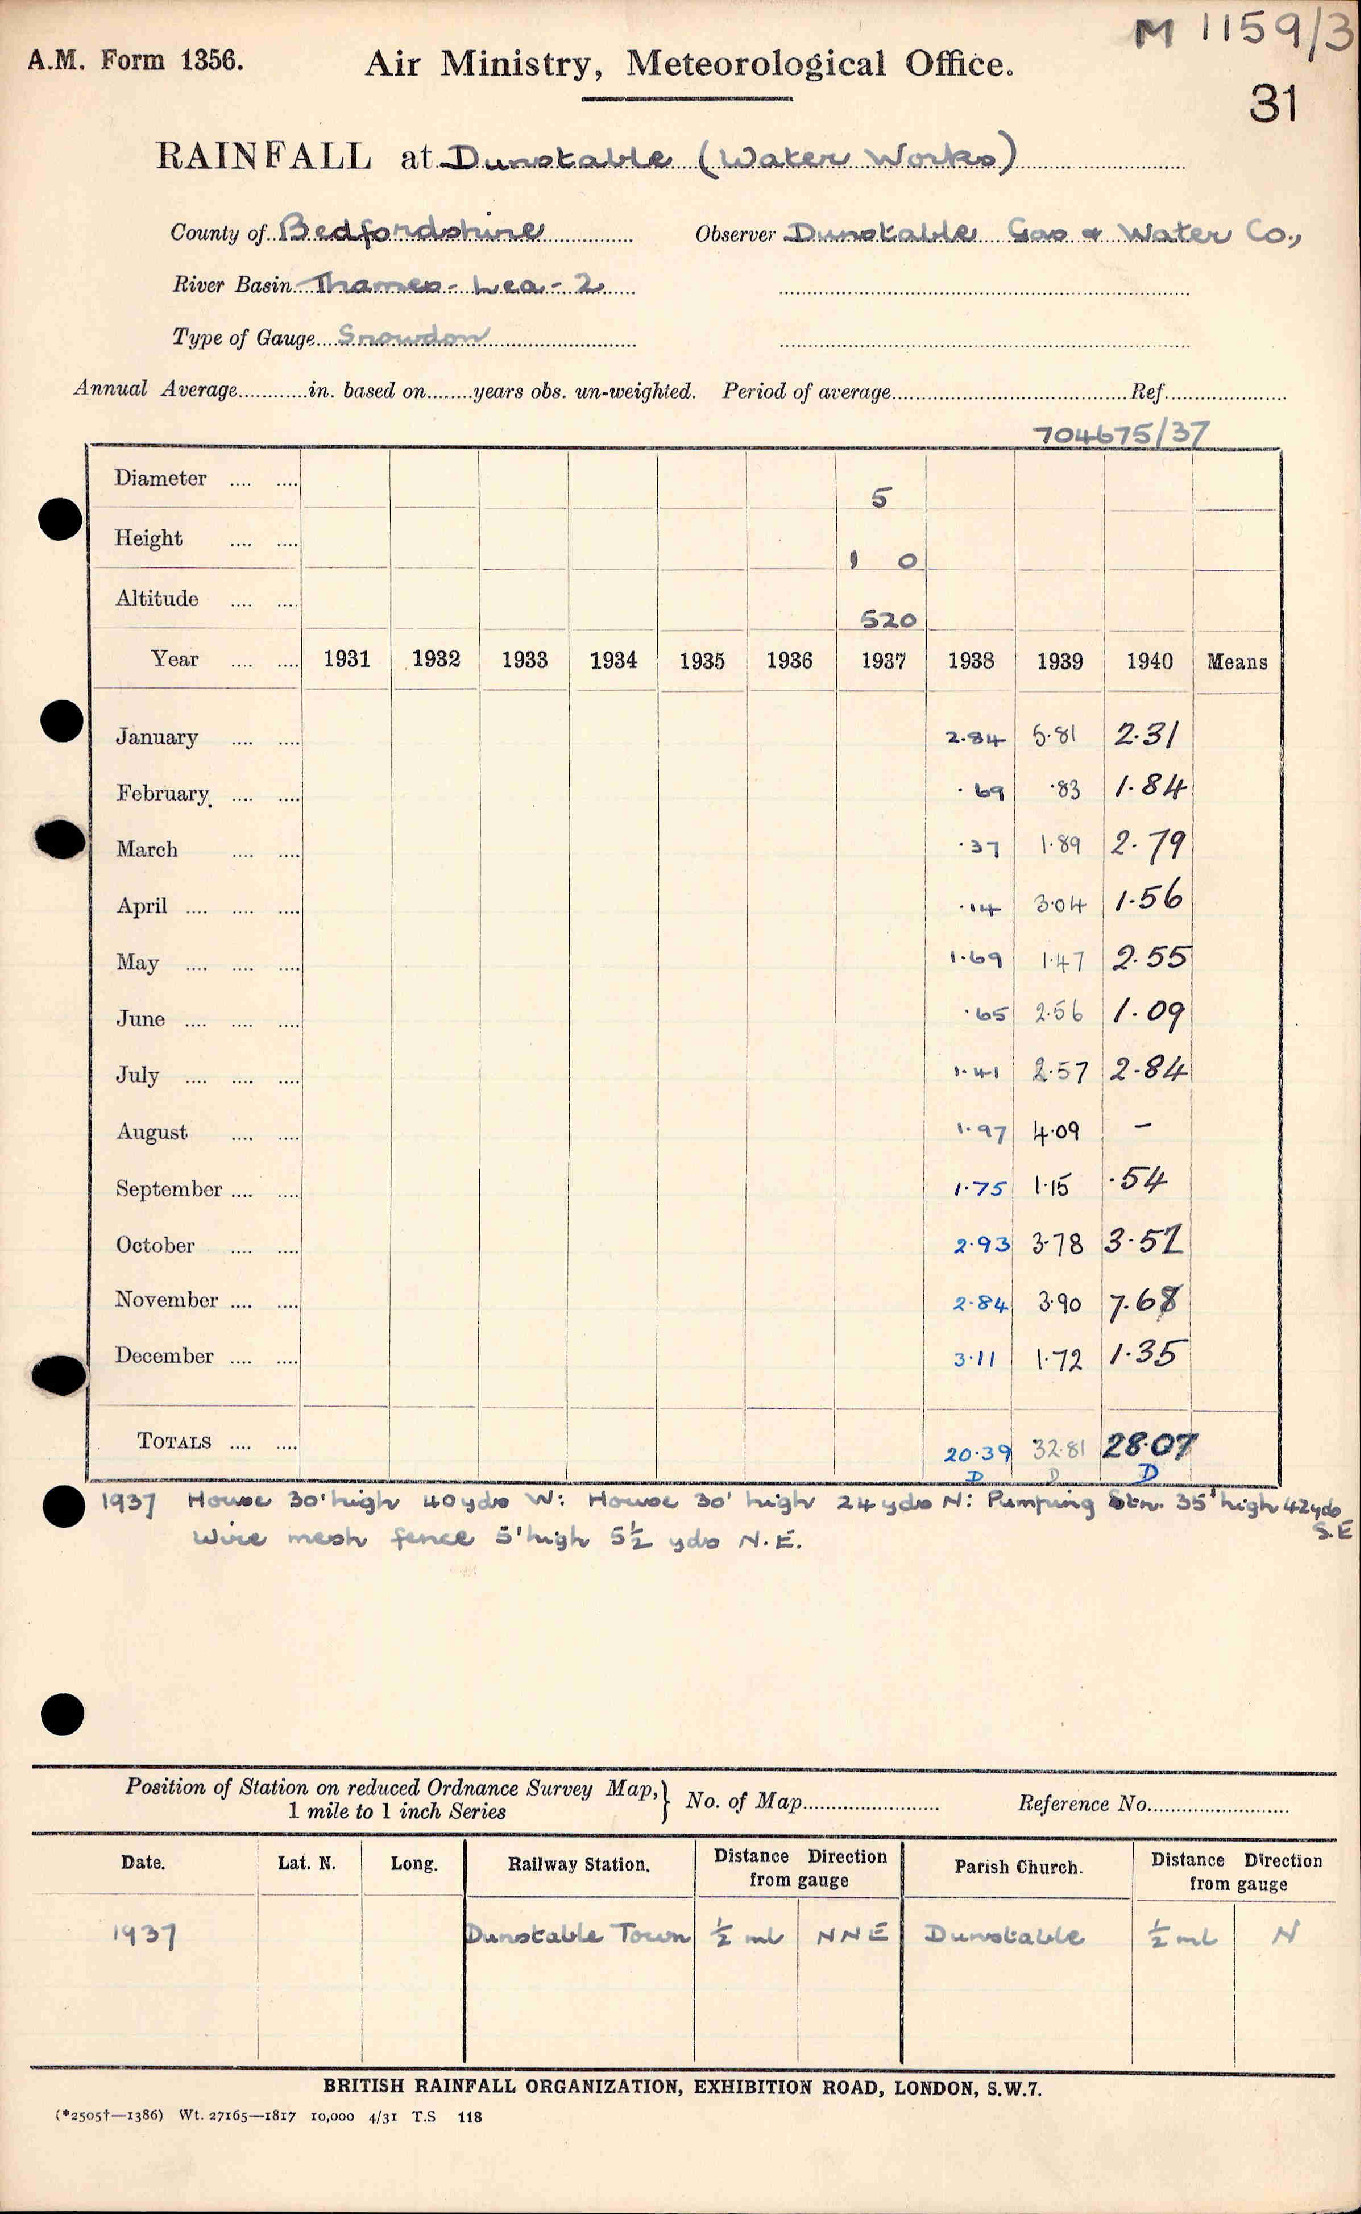 M 1159/3
A.M. Form 1356.
Air Ministry, Meteorological Office.
31
RAINFALL at Dunstable (Water Works)
County of Bedfordshire Observer Dunstable Gas & Water Co.,
River Basin Thames - Lea - 2
Type of Gauge Snowdon
Annual Average............in. based on........years obs. un-weighted. Period of average............ Ref............
704675/37
Diameter .... .... 5
Height .... .... 1 0
Altitude .... .... 520
Year .... .... 1931 1932 1933 1934 1935 1936 1937 1938 1939 1940 Means
January .... .... 2.84 5.81 2.31
February .... .... .69 .83 1.84
March .... .... .37 1.89 2.79
April .... .... .... .14 3.04 1.56
May .... .... .... 1.69 1.47 2.55
June .... .... .... .65 2.56 1.09
July .... .... .... 1.41 2.57 2.84
August .... .... 1.97 4.09 -
September .... .... 1.75 1.15 .54
October .... .... 2.93 3.78 3.52
November .... .... 2.84 3.90 7.68
December .... .... 3.11 1.72 1.35
TOTALS .... .... 20.39 32.81 28.07
D D D
1937 House 30' high 40 yds W: House 30' high 24 yds N: Pumping Stn. 35' high 42 yds S.E
Wire mesh fence 5' high 5½ yds N.E.
Position of Station on reduced Ordnance Survey Map,} No. of Map............ Reference No............
1 mile to 1 inch Series
Date. Lat. N. Long. Railway Station. Distance Direction from gauge Parish Church. Distance Direction from gauge
1937 Dunstable Town ½ ml NNE Dunstable ½ ml N
BRITISH RAINFALL ORGANIZATION, EXHIBITION ROAD, LONDON, S.W.7.
(*2505†—1386) Wt. 27165—1817 10,000 4/31 T.S 118